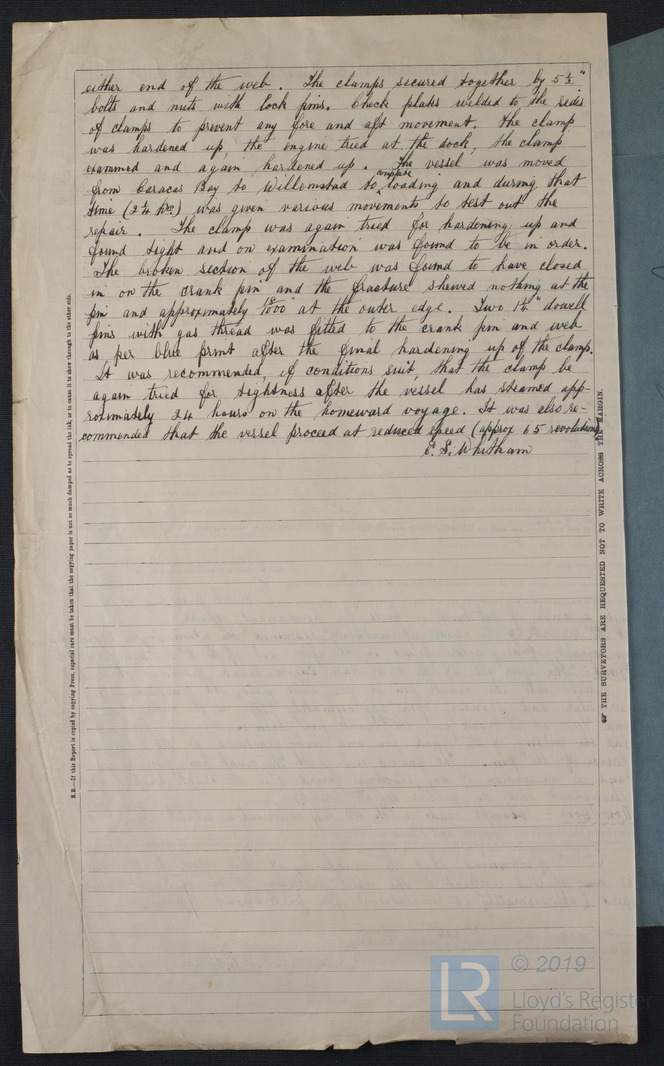 either end of the web. The clamps secured together by 5
bolts and nuts with lock pins. Check plates welded to the sides
of clamps to prevent any fore and aft movement. The clamp
was hardened up, the engine tried at the dock, the clamp
examined and again hardened up. The vessel was moved
from Caracas Bay to Willemstad to complete loading and during that
time (2¼ hrs.) was given various movements to test out the
repair. The clamp was again tried for hardening up and
found tight and on examination was found to be in order.
The broken section of the web was found to have closed
in on the crank pin and the fracture shewed nothing at the
pin and approximately /1000" at the outer edge. Two dowell
pins with gas thread was fitted to the crank pin and web
as per blue print after the final hardening up of the clamp.
It was recommended, if conditions suit, that the clamp be
again tried for tightness after the vessel has steamed app-
roximately 24 hours on the homeward voyage. It was also re-
commended that the vessel proceed at reduced speed (approx 65 revolutions
E. S. Whitham
N.B.—If this Report is copied by copying Press, especial care must be taken that the copying paper is not so much damped as to spread the ink, or to cause it to show through to the other side.
☞ THE SURVEYORS ARE REQUESTED NOT TO WRITE ACROSS THE MARGIN.
LR
© 2019
Lloyd's Register
Foundation